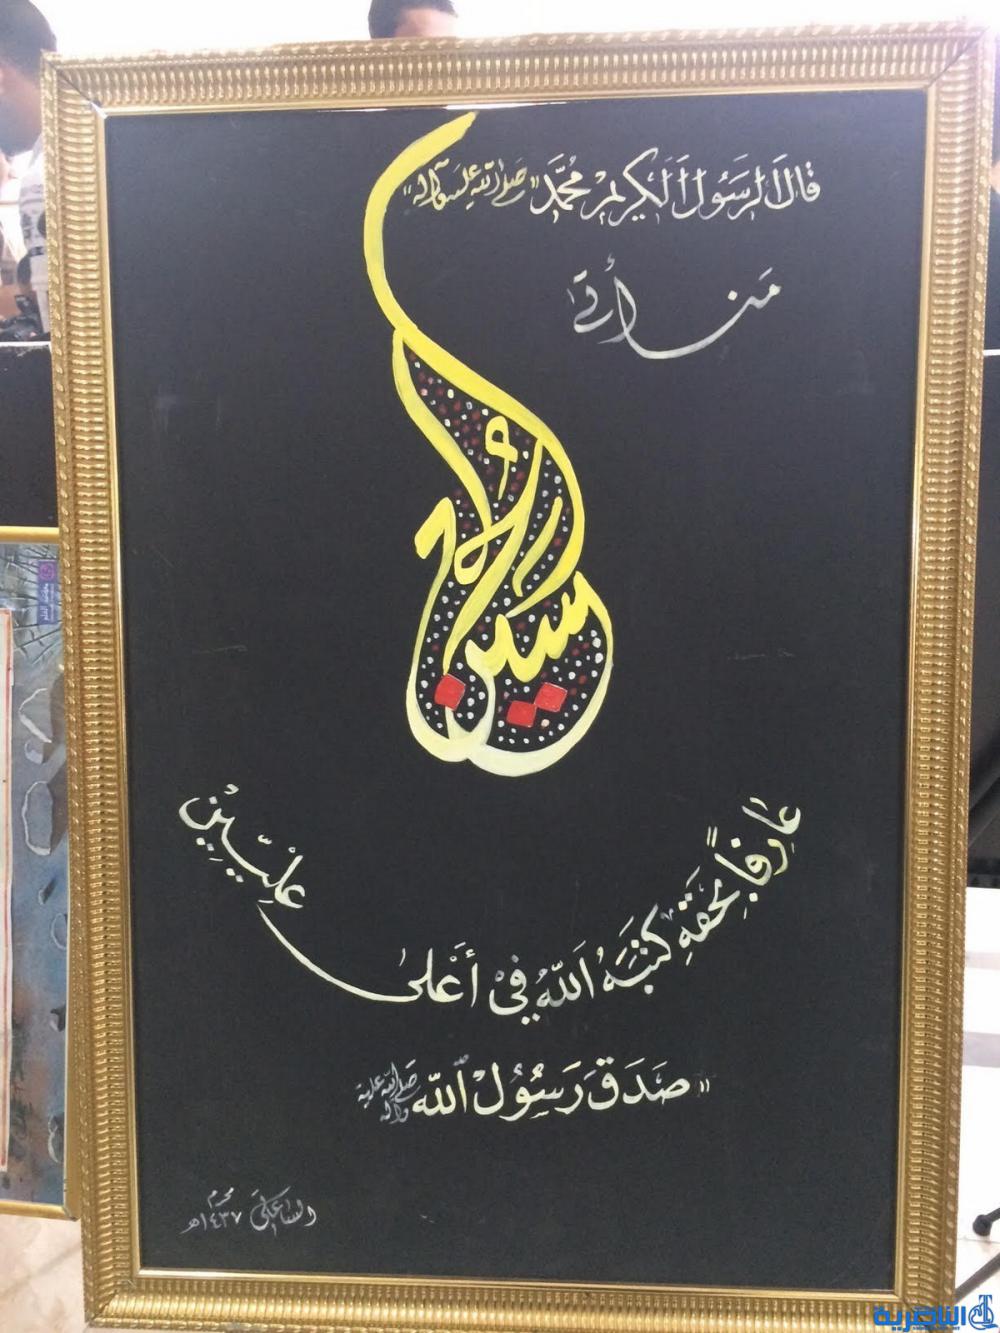 قال الرسول الكريم محمد "صلى الله عليه وآله"
من أتى
الحسين
عارفاً بحقه كتبه الله في أعلى عليين
"صدق رسول الله صلى الله عليه وآله
محرم
١٤٣٧هـ
الناصرية